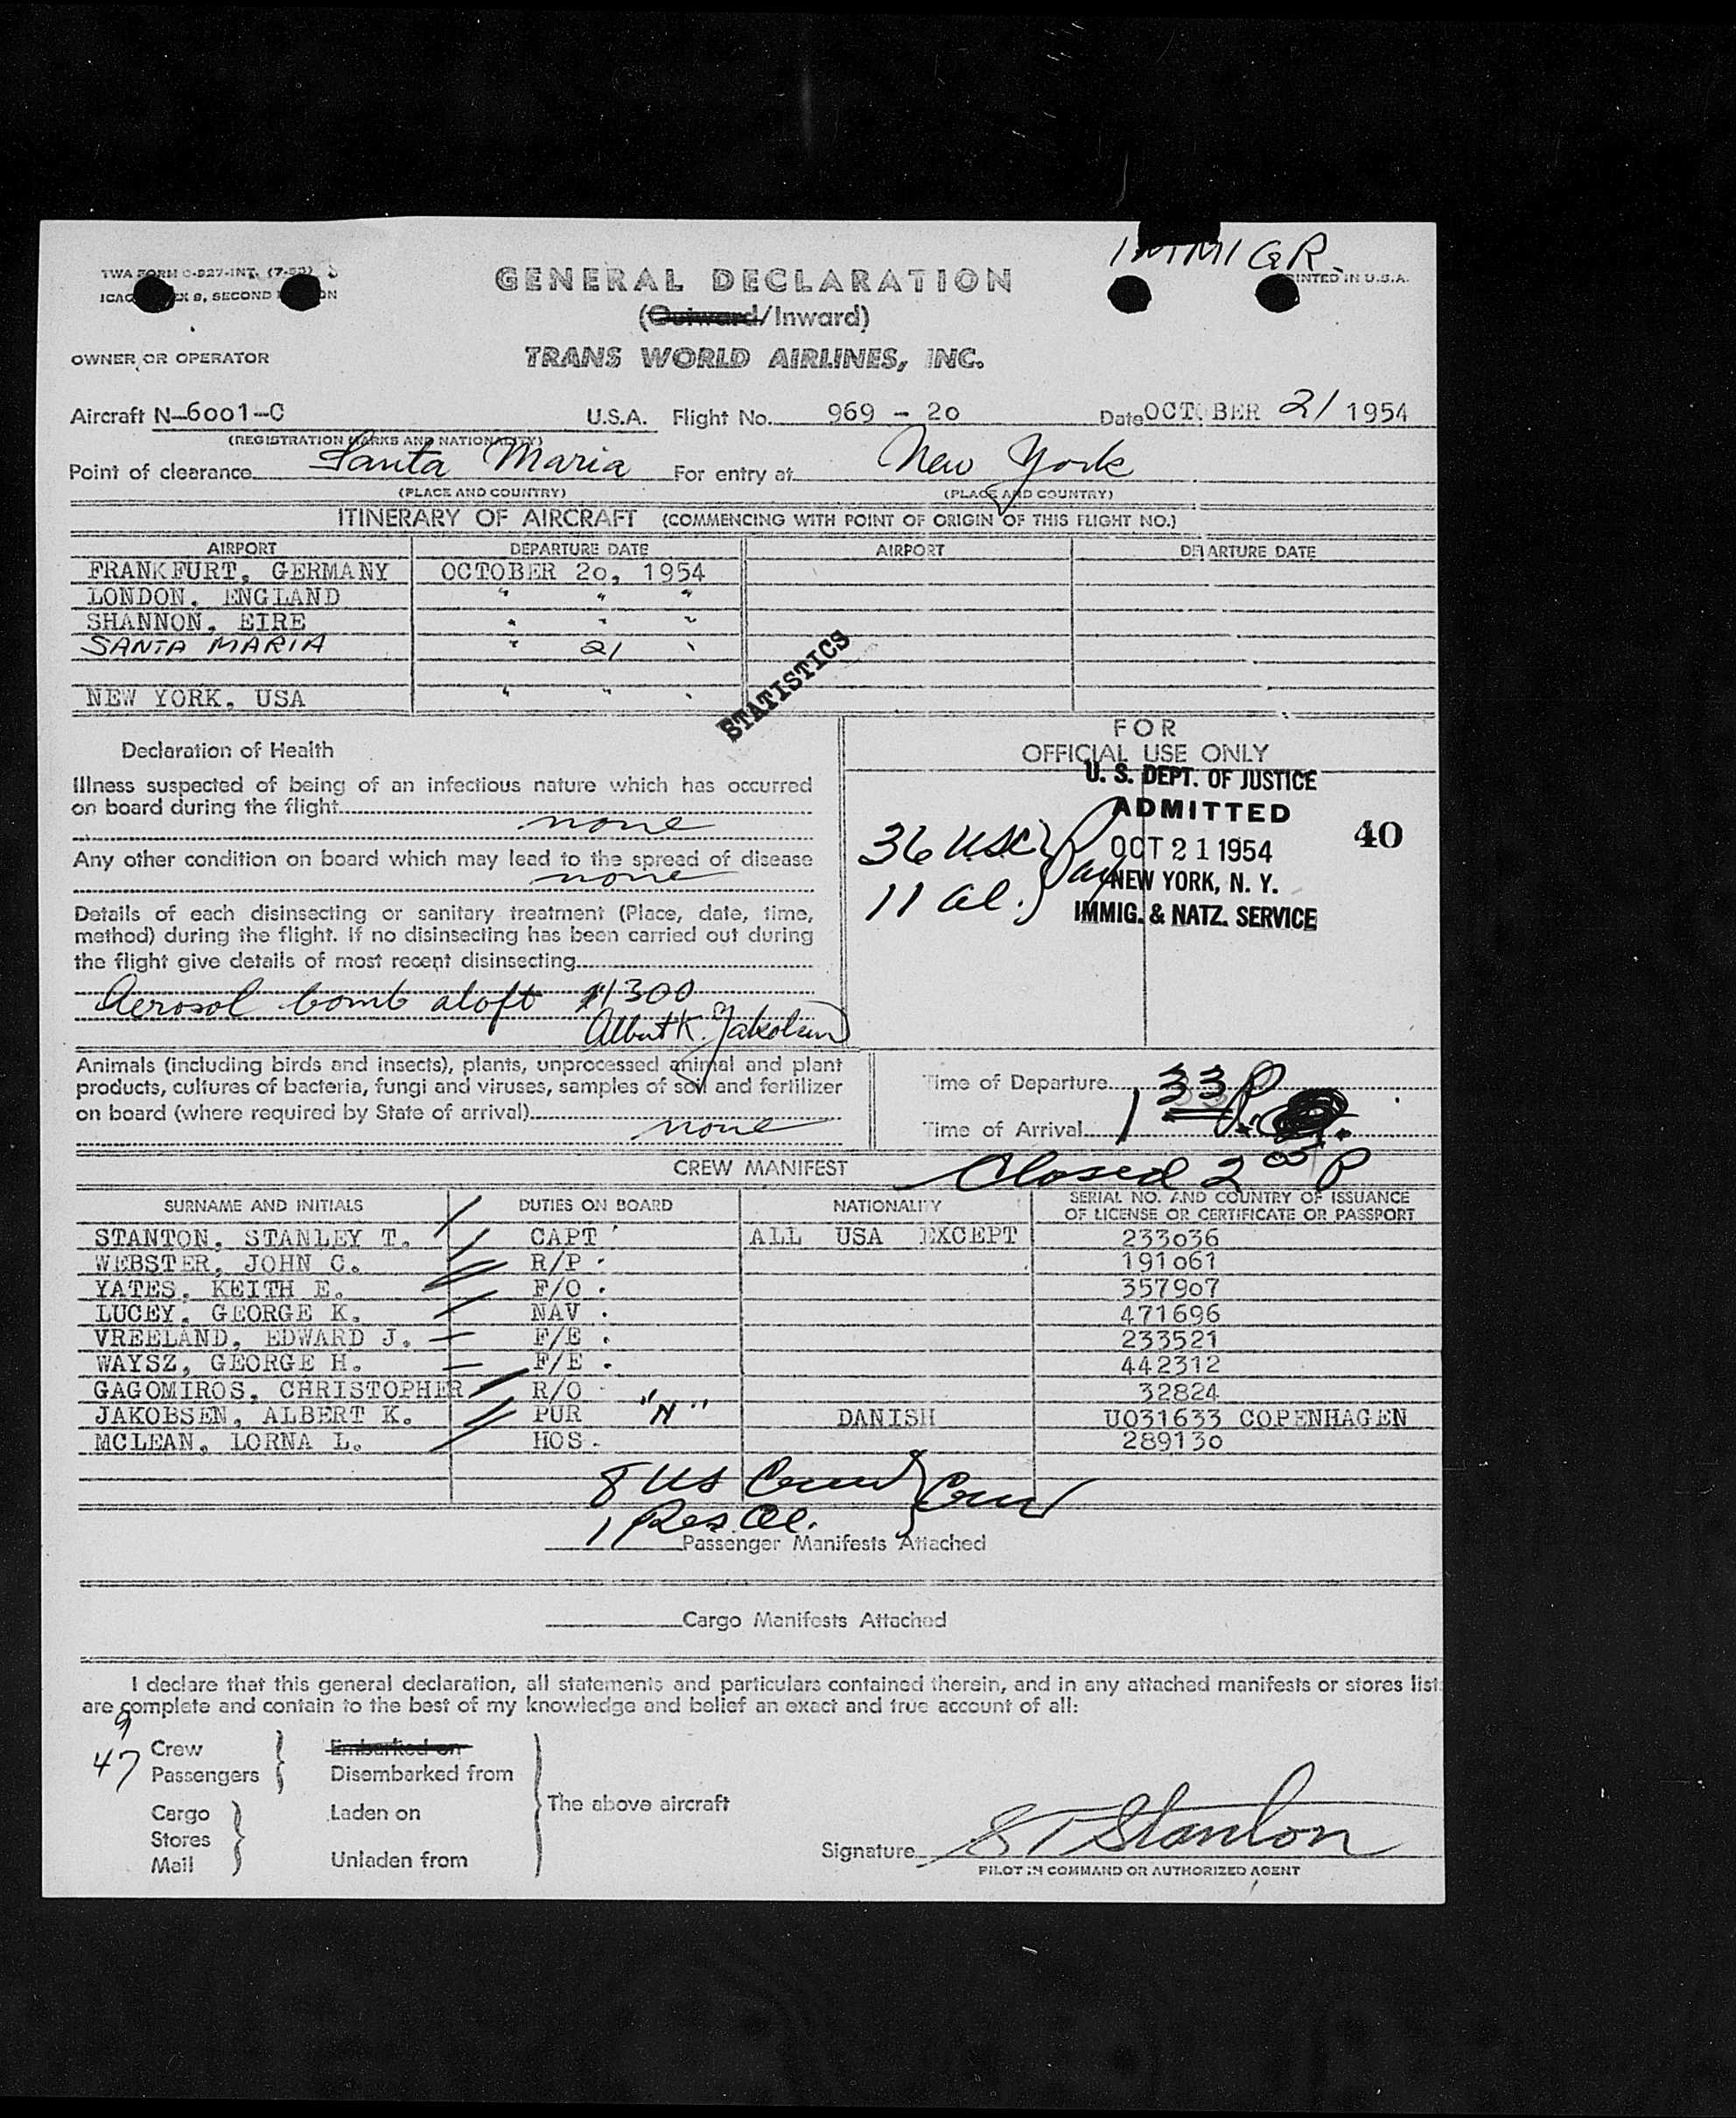 IMMIGR.
TWA FORM C-927-INT. (7-53)
PRINTED IN U.S.A.
ICAO ANNEX 9, SECOND EDITION
GENERAL DECLARATION
(Outward/Inward)
OWNER OR OPERATOR
TRANS WORLD AIRLINES, INC.
Aircraft N-6001-C U.S.A. Flight No. 969 - 20 Date OCTOBER 21 1954
(REGISTRATION MARKS AND NATIONALITY)
Point of clearance Santa Maria For entry at New York
(PLACE AND COUNTRY) (PLACE AND COUNTRY)
ITINERARY OF AIRCRAFT (COMMENCING WITH POINT OF ORIGIN OF THIS FLIGHT NO.)
AIRPORT DEPARTURE DATE AIRPORT DEPARTURE DATE
FRANKFURT, GERMANY OCTOBER 20, 1954
LONDON, ENGLAND " " "
SHANNON, EIRE " " "
SANTA MARIA " 21 "
NEW YORK, USA " " "
STATISTICS
FOR
OFFICIAL USE ONLY
Declaration of Health
Illness suspected of being of an infectious nature which has occurred
on board during the flight
none
Any other condition on board which may lead to the spread of disease
none
Details of each disinsecting or sanitary treatment (Place, date, time,
method) during the flight. If no disinsecting has been carried out during
the flight give details of most recent disinsecting
Aerosol bomb aloft 1300
Albert K. Jakobsen
U. S. DEPT. OF JUSTICE
ADMITTED
OCT 21 1954
NEW YORK, N. Y.
IMMIG. & NATZ. SERVICE
40
36 USC
11 al.
Animals (including birds and insects), plants, unprocessed animal and plant
products, cultures of bacteria, fungi and viruses, samples of soil and fertilizer
on board (where required by State of arrival)
none
Time of Departure
Time of Arrival 1 33 P.
CREW MANIFEST Closed 2 05 P
SURNAME AND INITIALS DUTIES ON BOARD NATIONALITY SERIAL NO. AND COUNTRY OF ISSUANCE
OF LICENSE OR CERTIFICATE OR PASSPORT
STANTON, STANLEY T. CAPT ALL USA EXCEPT 233036
WEBSTER, JOHN C. R/P 191061
YATES, KEITH E. F/O 357907
LUCEY, GEORGE K. NAV 471696
VREELAND, EDWARD J. F/E 233521
WAYSZ, GEORGE H. F/E 442312
GAGOMIROS, CHRISTOPHER R/O 32824
JAKOBSEN, ALBERT K. PUR "N" DANISH U031633 COPENHAGEN
MCLEAN, LORNA L. HOS 289130
8 US
1 Res. Al.
Passenger Manifests Attached
Cargo Manifests Attached
I declare that this general declaration, all statements and particulars contained therein, and in any attached manifests or stores list
are complete and contain to the best of my knowledge and belief an exact and true account of all:
9 Crew Embarked on
47 Passengers Disembarked from
The above aircraft
Cargo Laden on
Stores
Mail Unladen from
Signature S T Stanton
PILOT IN COMMAND OR AUTHORIZED AGENT